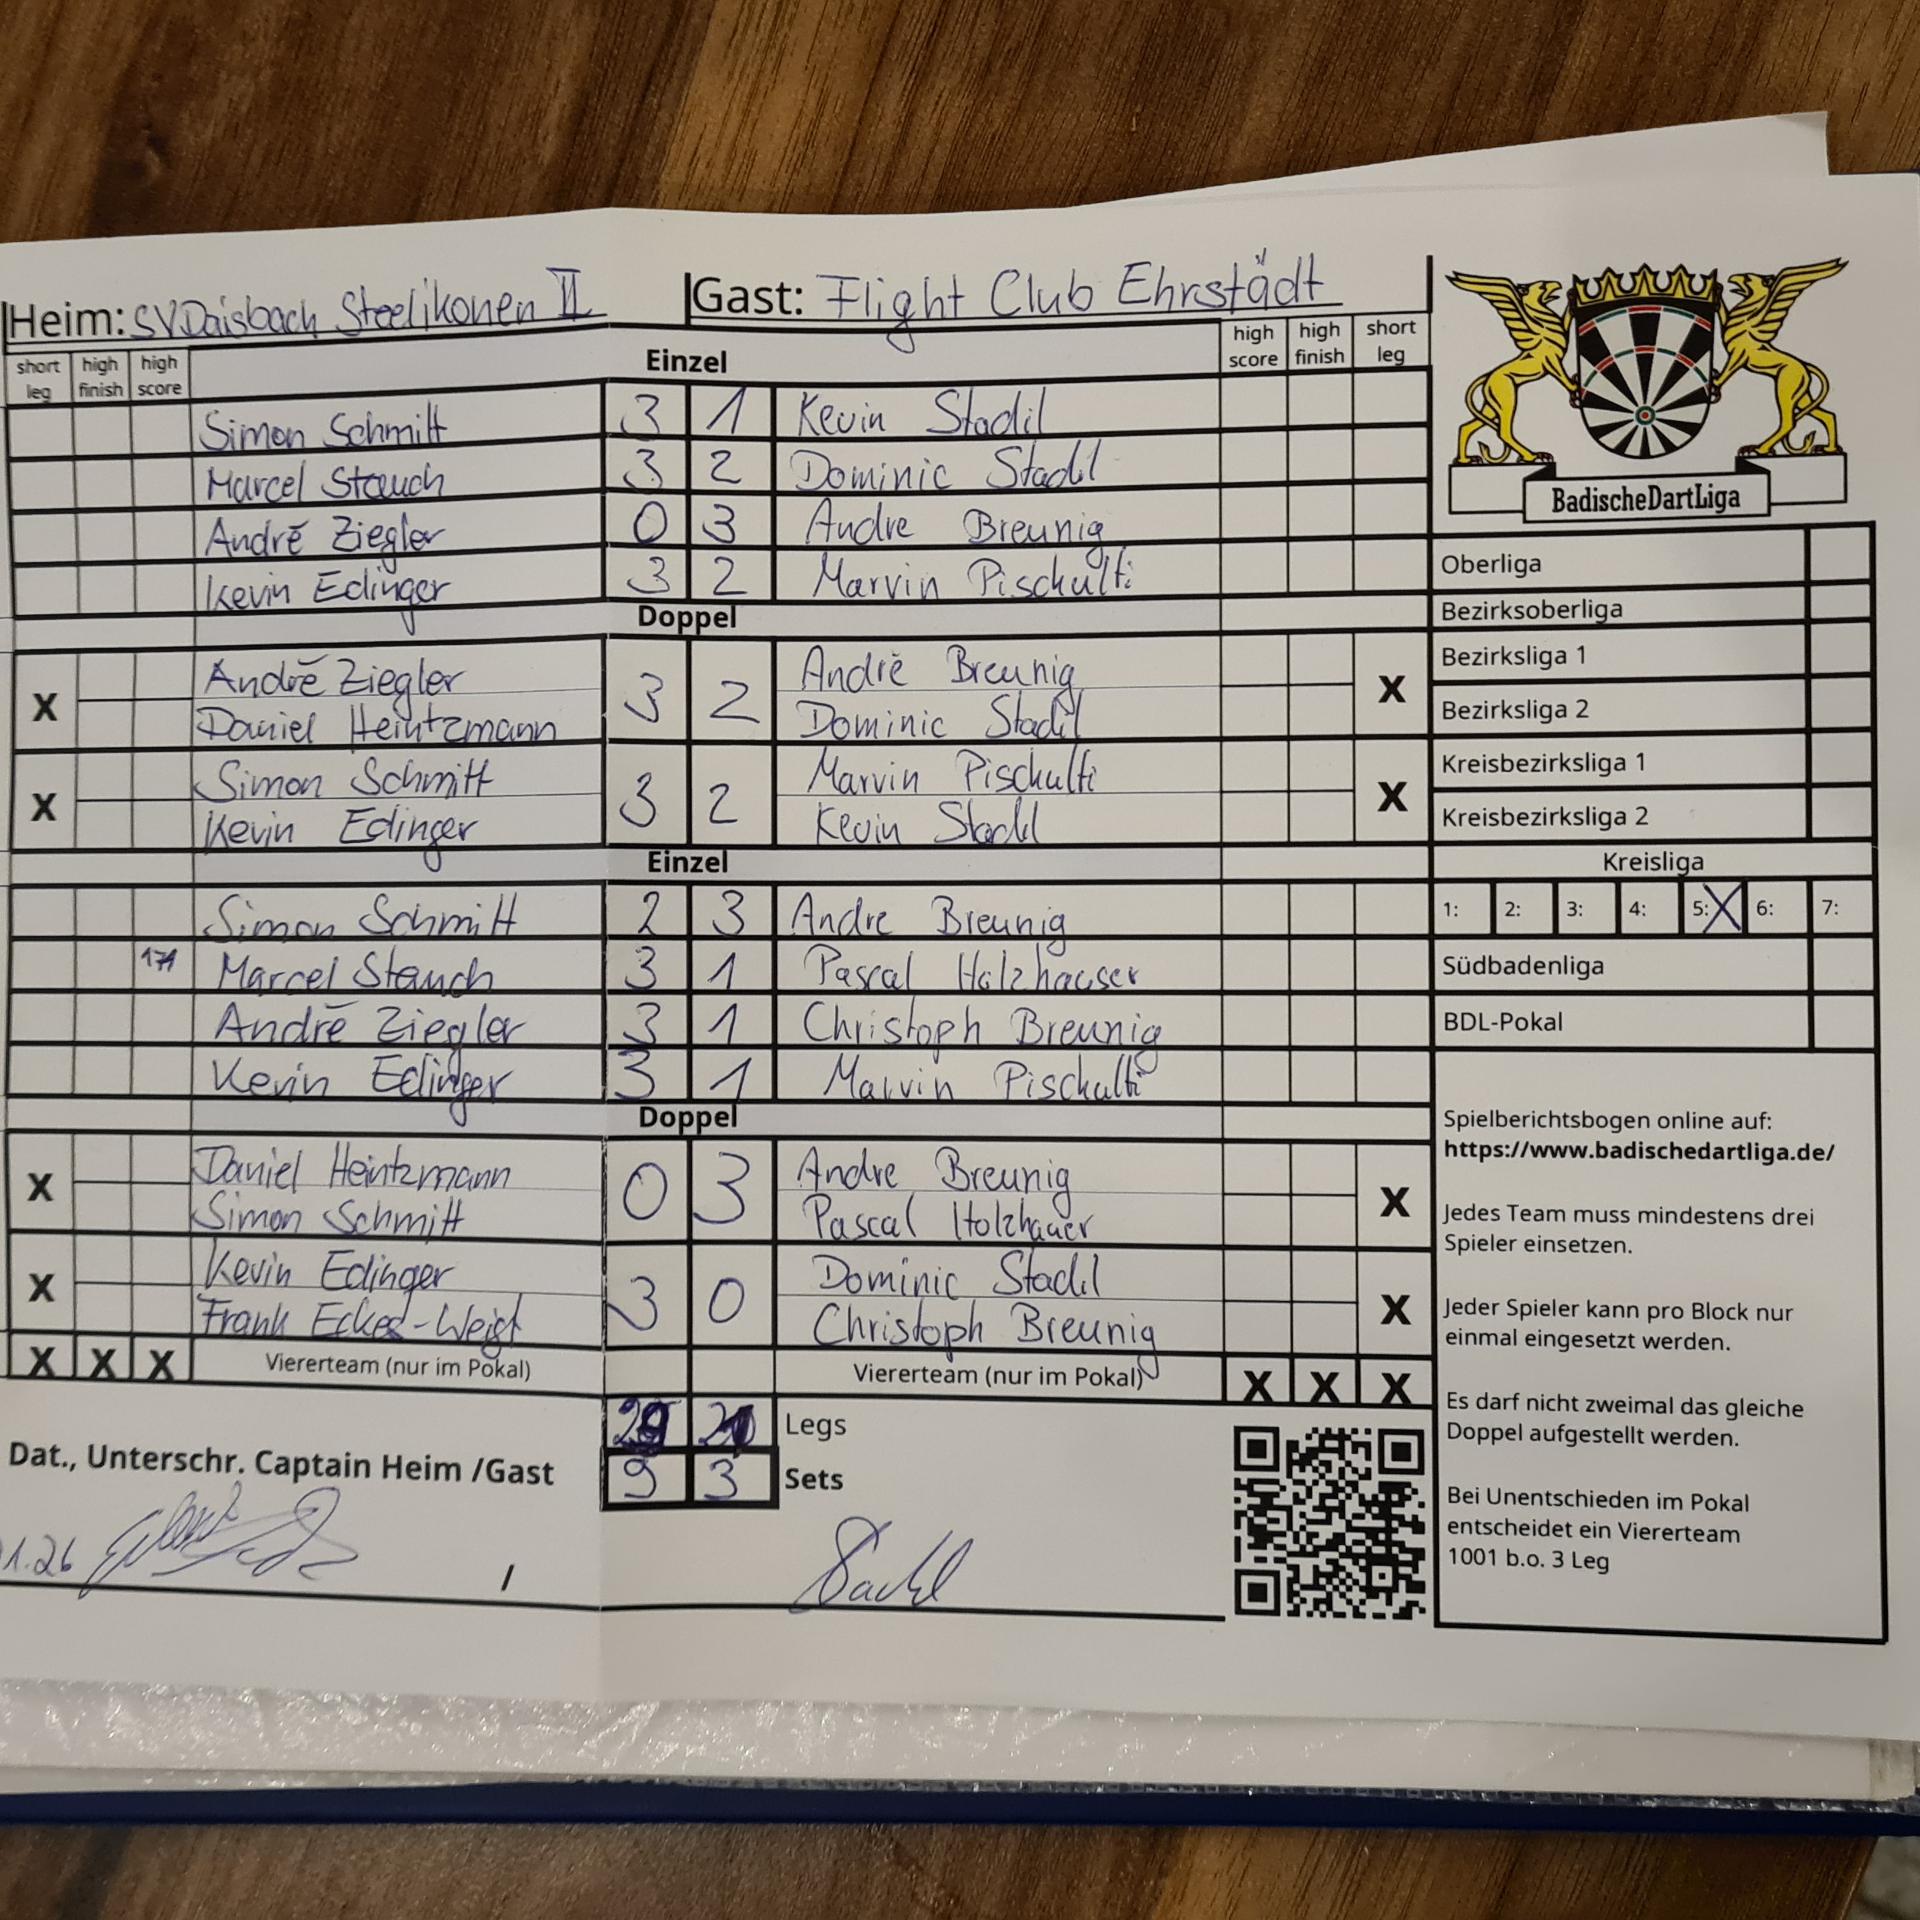 Heim: SV Daisbach Steelikonen II Gast: Flight Club Ehrstädt
short leg high finish high score Einzel high score high finish short leg
Simon Schmitt 3 1 Kevin Stadil
Marcel Stauch 3 2 Dominic Stadl
André Ziegler 0 3 Andre Breunig
Kevin Edinger 3 2 Marvin Pischulti
Doppel
André Ziegler André Breunig
X 3 2 X
Daniel Heintzmann Dominic Stadil
Simon Schmitt Marvin Pischulti
X 3 2 X
Kevin Edinger Kevin Stadl
Einzel
Simon Schmitt 2 3 Andre Breunig
171 Marcel Stauch 3 1 Pascal Holzhauser
André Ziegler 3 1 Christoph Breunig
Kevin Edinger 3 1 Marvin Pischulti
Doppel
Daniel Heintzmann Andre Breunig
X 0 3 X
Simon Schmitt Pascal Holzhauer
Kevin Edinger Dominic Stadl
X 3 0 X
Frank Christoph Breunig
X X X Viererteam (nur im Pokal) Viererteam (nur im Pokal) X X X
Legs
Dat., Unterschr. Captain Heim /Gast 9 3 Sets
1.26 /
BadischeDartLiga
Oberliga
Bezirksoberliga
Bezirksliga 1
Bezirksliga 2
Kreisbezirksliga 1
Kreisbezirksliga 2
Kreisliga
1: 2: 3: 4: 5: X 6: 7:
Südbadenliga
BDL-Pokal
Spielberichtsbogen online auf:
https://www.badischedartliga.de/
Jedes Team muss mindestens drei
Spieler einsetzen.
Jeder Spieler kann pro Block nur
einmal eingesetzt werden.
Es darf nicht zweimal das gleiche
Doppel aufgestellt werden.
Bei Unentschieden im Pokal
entscheidet ein Viererteam
1001 b.o. 3 Leg